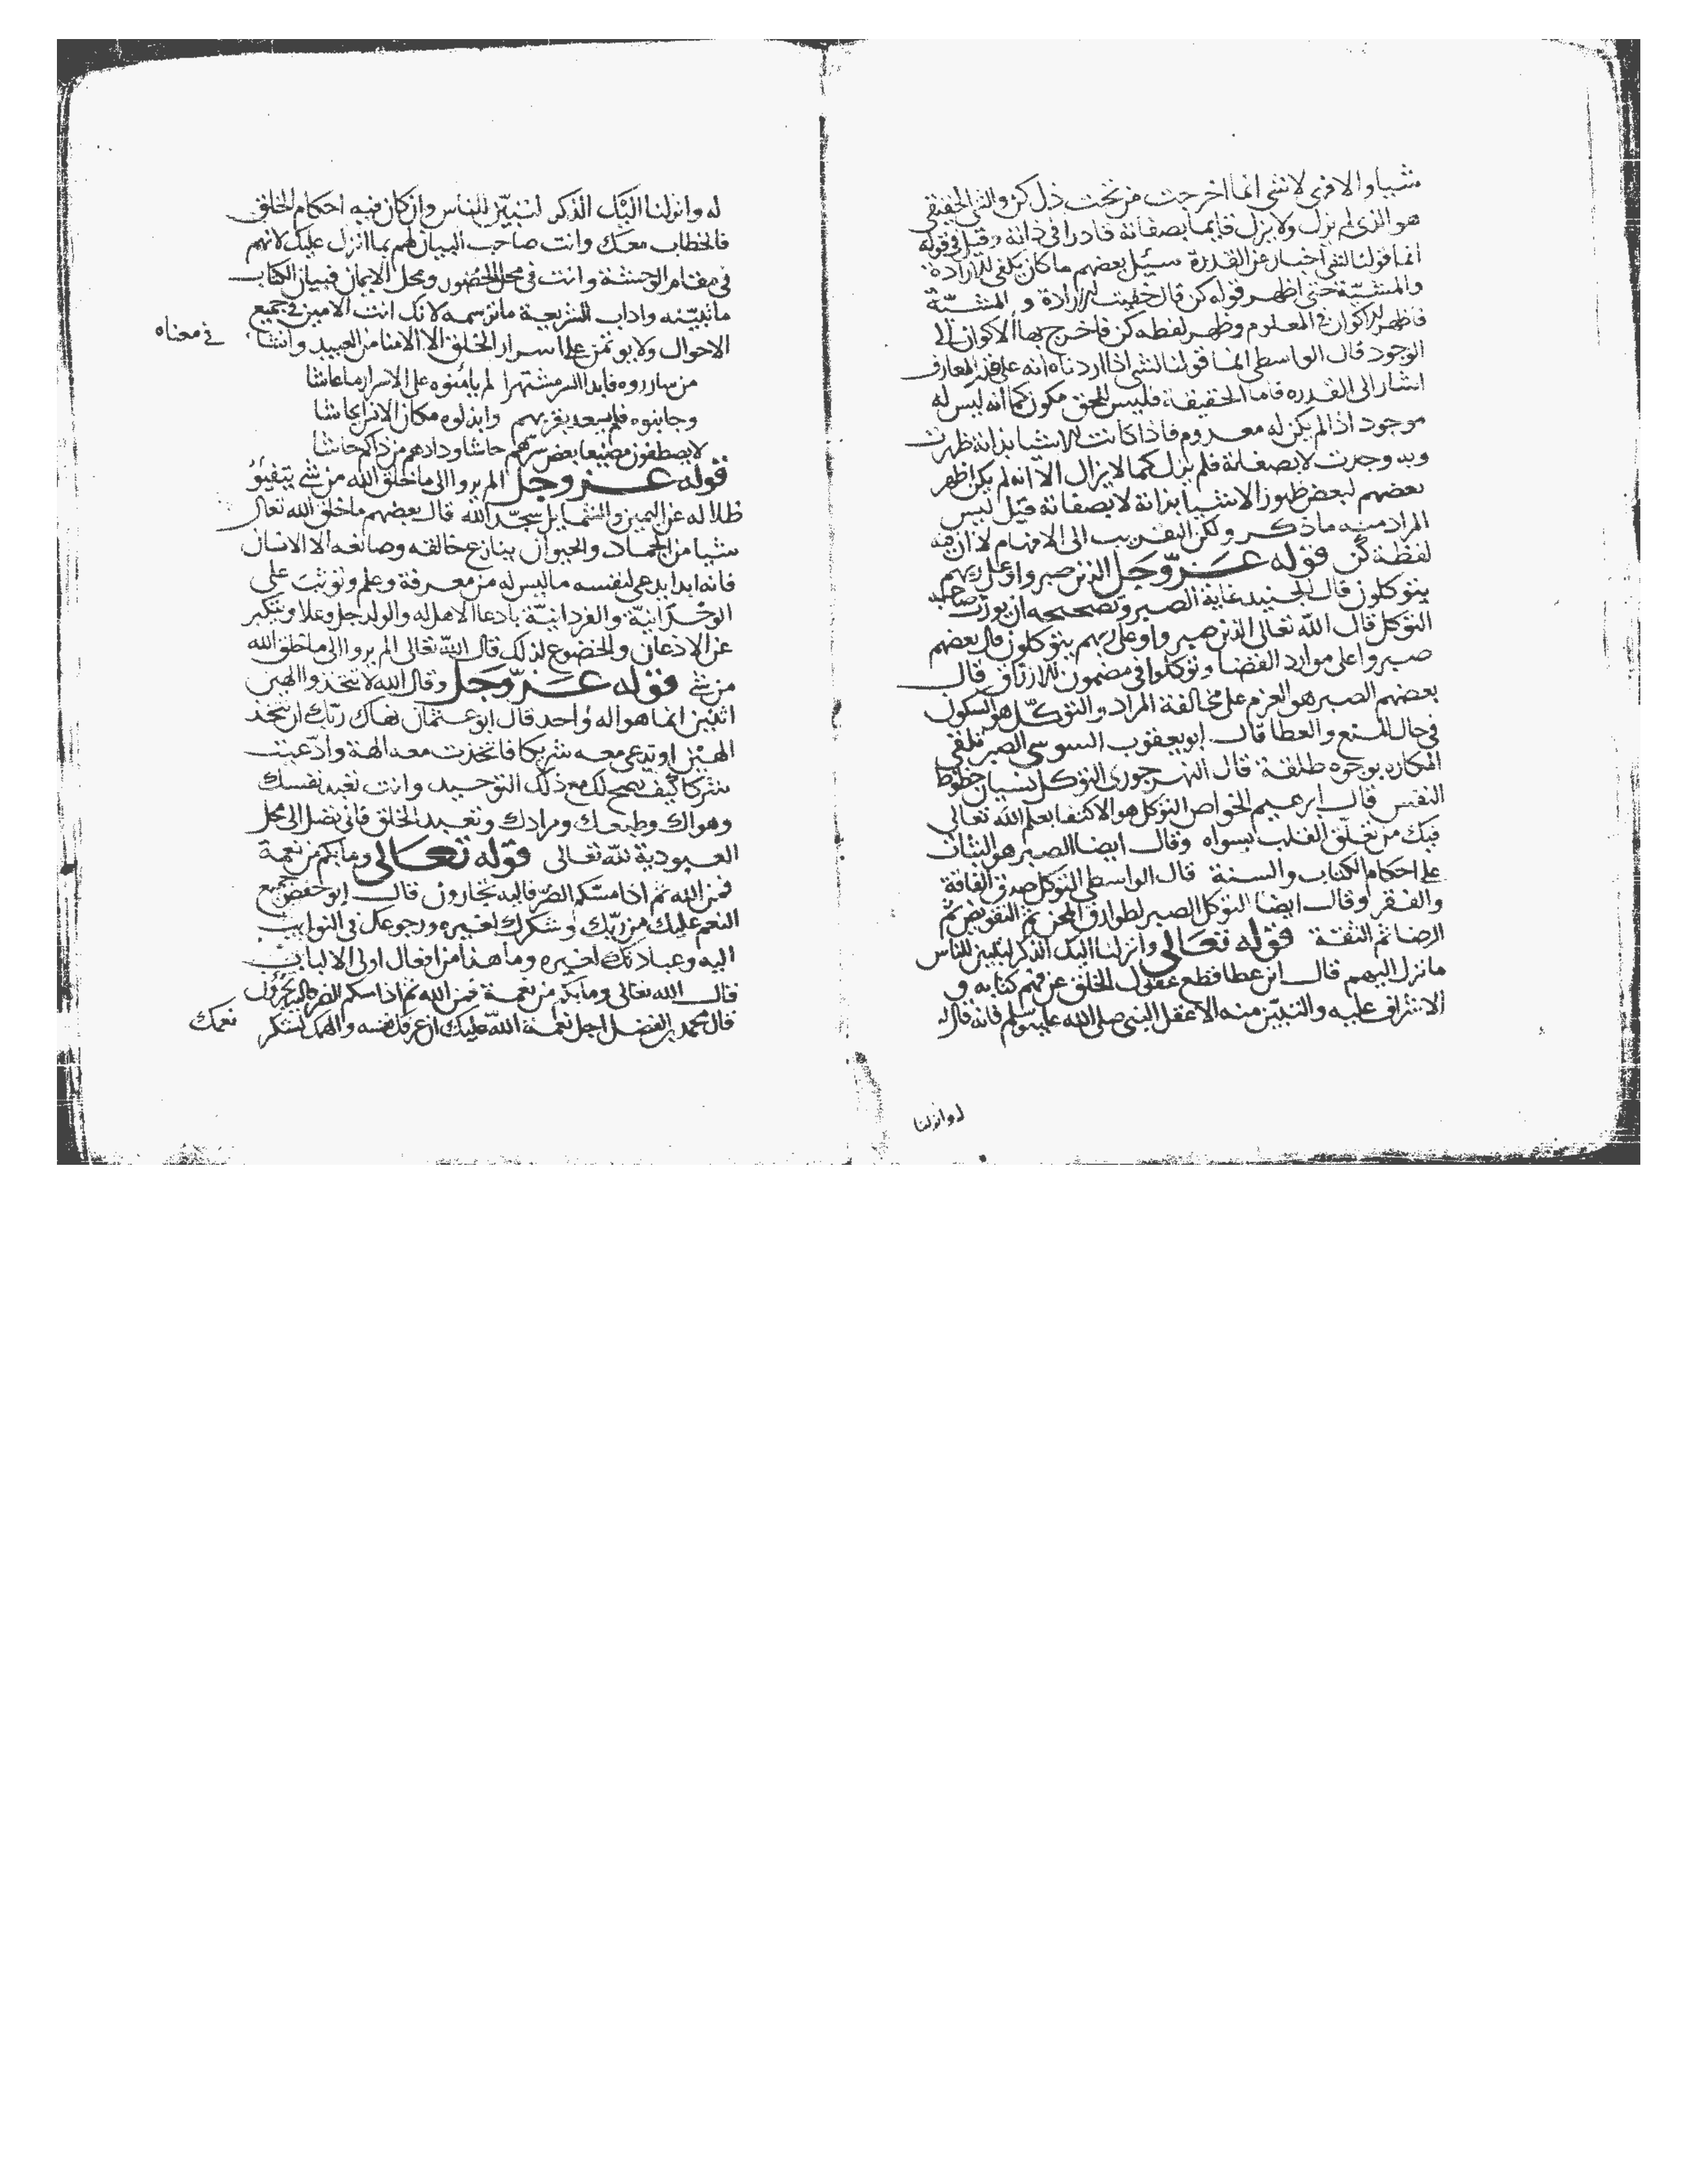 شيا والا فهى لا شى انما اخرجت من تحت ذل كن والشى الحقيقى
هو الذى لم يزل ولا يزل قايما بصفاته قادرا فى ذاته وقيل فى قوله
انما قولنا لشى اخبار عن القدرة سيل بعضهم ما كان يلغى للارادة
والمشيّة حتى اظهر قوله كن قال خفيت الارادة و المشيّة
فاظهر الاكوان فى المعلوم وظهر لفظه كن فاخرج بها الاكوان الى
الوجود قال الواسطى انما قولنا لشى اذا اردناه انه على قدر المعارف
اشار الى القدره فاما الحقيقة فليس للحق مكون كما انه ليس له
موجود اذ لم يكن له معدوم فاذا كانت الاشيا بذاته ظهرت
وبه وجدت لا بصفاته فلم يزل كما لا يزال الا انه لم يكن اظهر
بعضهم لبعض ظهور الاشيا بذاته لا بصفاته قيل ليس
المراد منه ما ذكر ولكن التقريب الى الافهام لا ان فيه
لفظة كن قوله عَزّوَجَل الذين صبروا وعلى ربهم
يتوكلون قال الجنيد غاية الصبر وتصحيحه ان يورث صاحبه
التوكل قال الله تعالى الذين صبروا وعلى ربهم يتوكلون قال بعضهم
صبروا على موارد القضا وتوكلوا فى مضمون الارزاق قال
بعضهم الصبر هو العزم على مخالفة المراد والتوكّل هو السكون
فى حال المنع والعطا قال ابو يعقوب السوسى الصبر تلقى
المكاره بوجوه طلقة قال النهرجورى التوكل نسيان حظوظ
النفس قال ابرهيم الخواص التوكل هو الاكتفا بعلم الله تعالى
فيك من تعلّق القلب بسواه وقال ايضا الصبر هو الثبات
على احكام الكتاب والسنة قال الواسطى التوكل صدق الفاقة
والفقر وقال ايضا التوكل الصبر لطوارق المحن ثم التفويض ثم
الرضا ثم الثقة قوله تعالى وانزلنا اليك الذكر لتبين للناس
ما نزل اليهم قال ابن عطا قطع عقول الخلق عن فهم كتابه و
الاشراف عليه والتبيّن منه الا عقل النبى صلى الله عليه وسلم فانه قال
له وانزلنا
له وانزلنا اليْك الذكر لتبيّن للناس وان كان فيه احكام الخلق
فالخطاب معك وانت صاحب البيان لهم بما انزل عليك لانهم
فى مقام الوحشة وانت فى محل الحضور ومحل الايمان فبيان الكتاب
ما تبيّنه واداب الشريعة ما ترسمه لانك انت الامين فى جميع
الاحوال ولا يوتمن على اسرار الخلق الا الامنا من العبيد وانشا
فى معناه
من سارروه فابدا السر مشتهرا لم يأمنوه على الاسرار ما عاشا
وجانبوه فلم يسعد بقربهم وابدلوه مكان الانس ايحاشا
لا يصطفون مضيعا بعض سرهم حاشا ودادهم من ذاكم حاشا
قوله عز وجل الم يروا الى ما خلق الله من شى يتفيؤ
ظلاله عن اليمين والشمايل سجّد الله قال بعضهم ما خلق الله تعالى
شيا من الجماد والحيوان ينازع خالقه وصانعه الا الانسان
فانه ابدا يدعى لنفسه ما ليس له من معرفة وعلم وتوثب على
الوحْدَانيّة والفردانيّة بادعا الاهل له والولد جل وعلا ويتكبر
عن الاذعان والخضوع لذلك قال الله تعالى الم يروا الى ما خلق الله
من شى قوله عَزّوَجَل وقال الله لا تتخذوا الهين
اثنين انما هو اله واحد قال ابو عثمان نهاك ربّك ان تتخذ
الهيْن او تدعى معه شريكا فاتخذت معه الهة وادّعيت
شركا كيف يصح لك مع ذلك التوحيد وانت تعبد نفسك
وهواك وطبعك ومرادك وتعبد الخلق فانى تصل الى محل
العبودية لله تعالى قوله تعالى وما بكم من نعمة
فمن الله ثم اذا مسّكم الضرّ فاليه تجارون قال ابو حفص جميع
النعم عليك من ربّك وشكرك لغيره ورجوعك فى النوايب
اليه وعبادتك لغيره وما هذا من افعال اولى الالباب
قال الله تعالى وما بكم من نعمة فمن الله ثم اذا مسكم الضر فاليه تجرون
قال محمد بن الفضل اجل نعمة الله عليك ان عرفك نفسه والهمك لشكر
نعمك